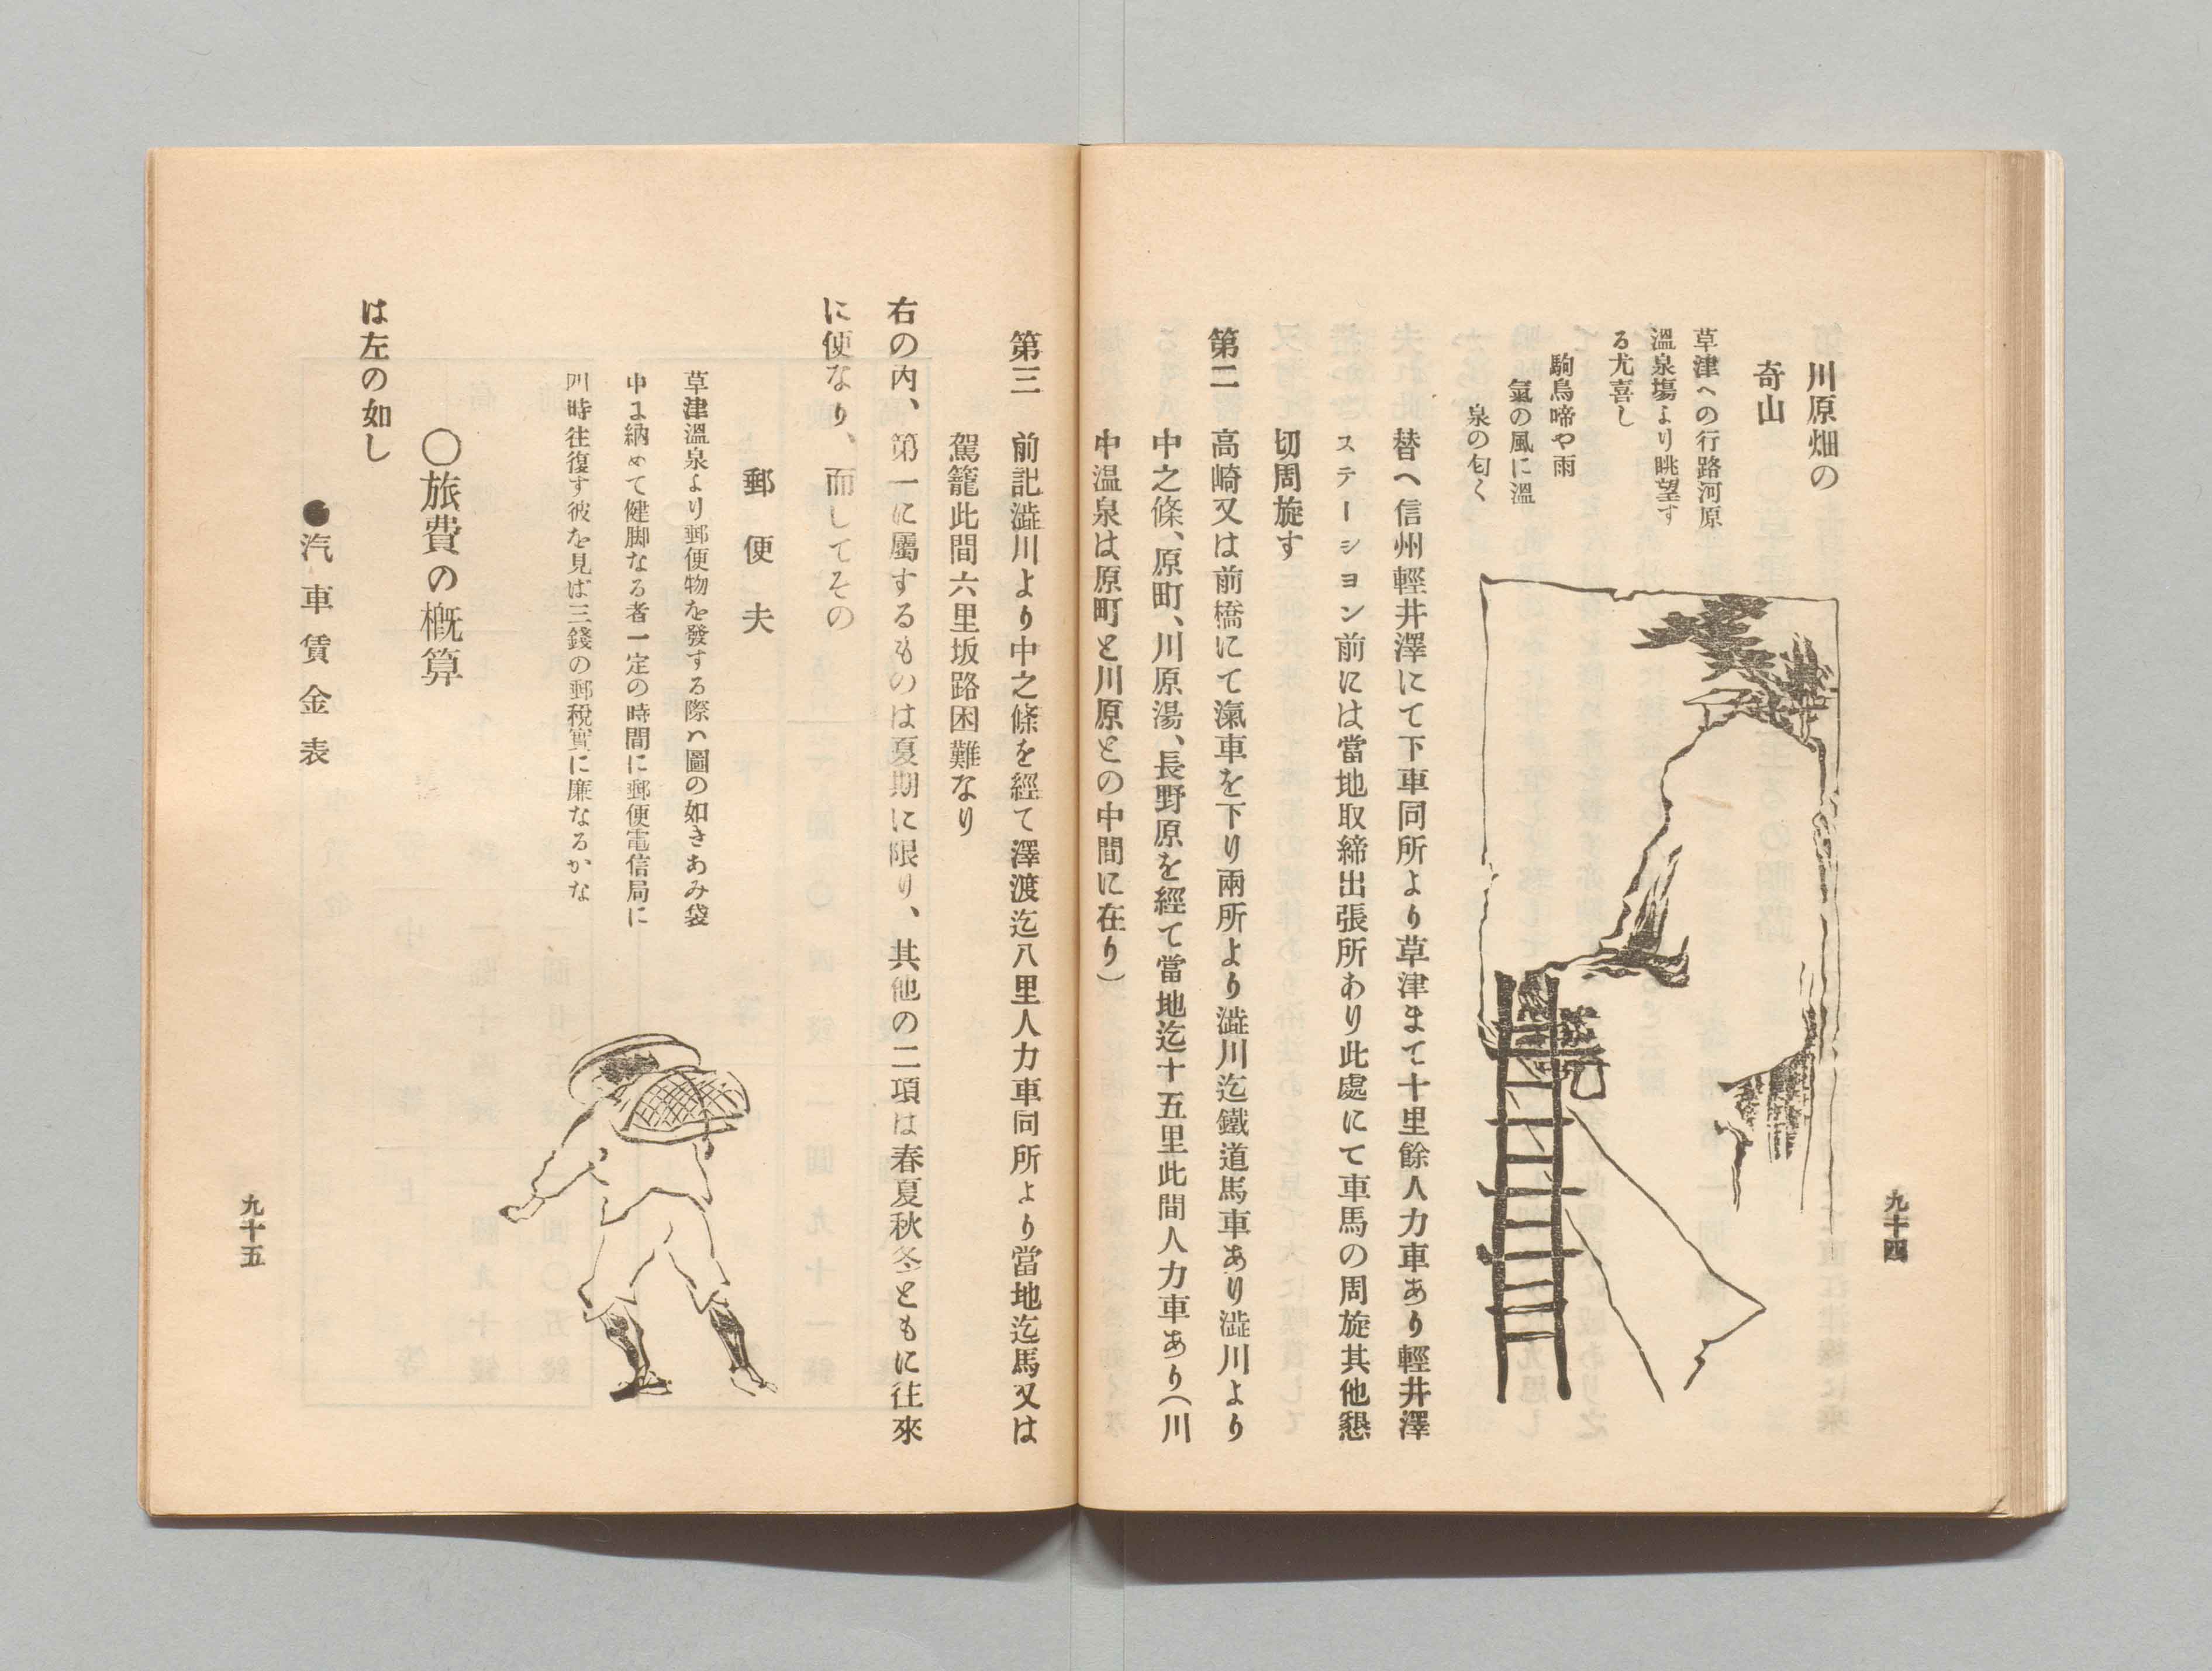 川原畑の
奇山
草津への行路河原
溫泉塲より眺望す
る尤喜し
駒鳥啼や雨
氣の風に溫
泉の匂く
替へ信州輕井澤にて下車同所より草津まて十里餘人力車あり輕井澤
ステーシヨン前には當地取締出張所あり此處にて車馬の周旋其他懇
切周旋す
第二 高崎又は前橋にて滊車を下り兩所より澁川迄鐵道馬車あり澁川より
中之條、原町、川原湯、長野原を經て當地迄十五里此間人力車あり(川
中温泉は原町と川原との中間に在り)
九十四
第三 前記澁川より中之條を經て澤渡迄八里人力車同所より當地迄馬又は
駕籠此間六里坂路困難なり
右の内、第一に屬するものは夏期に限り、其他の二項は春夏秋冬ともに往來
に便なり、而してその
郵便夫
草津溫泉より郵便物を發する際ハ圖の如きあみ袋
中に納めて健脚なる者一定の時間に郵便電信局に
四時往復す彼を見ば三錢の郵税實に廉なるかな
〇旅費の概算
は左の如し
●汽車賃金表
九十五